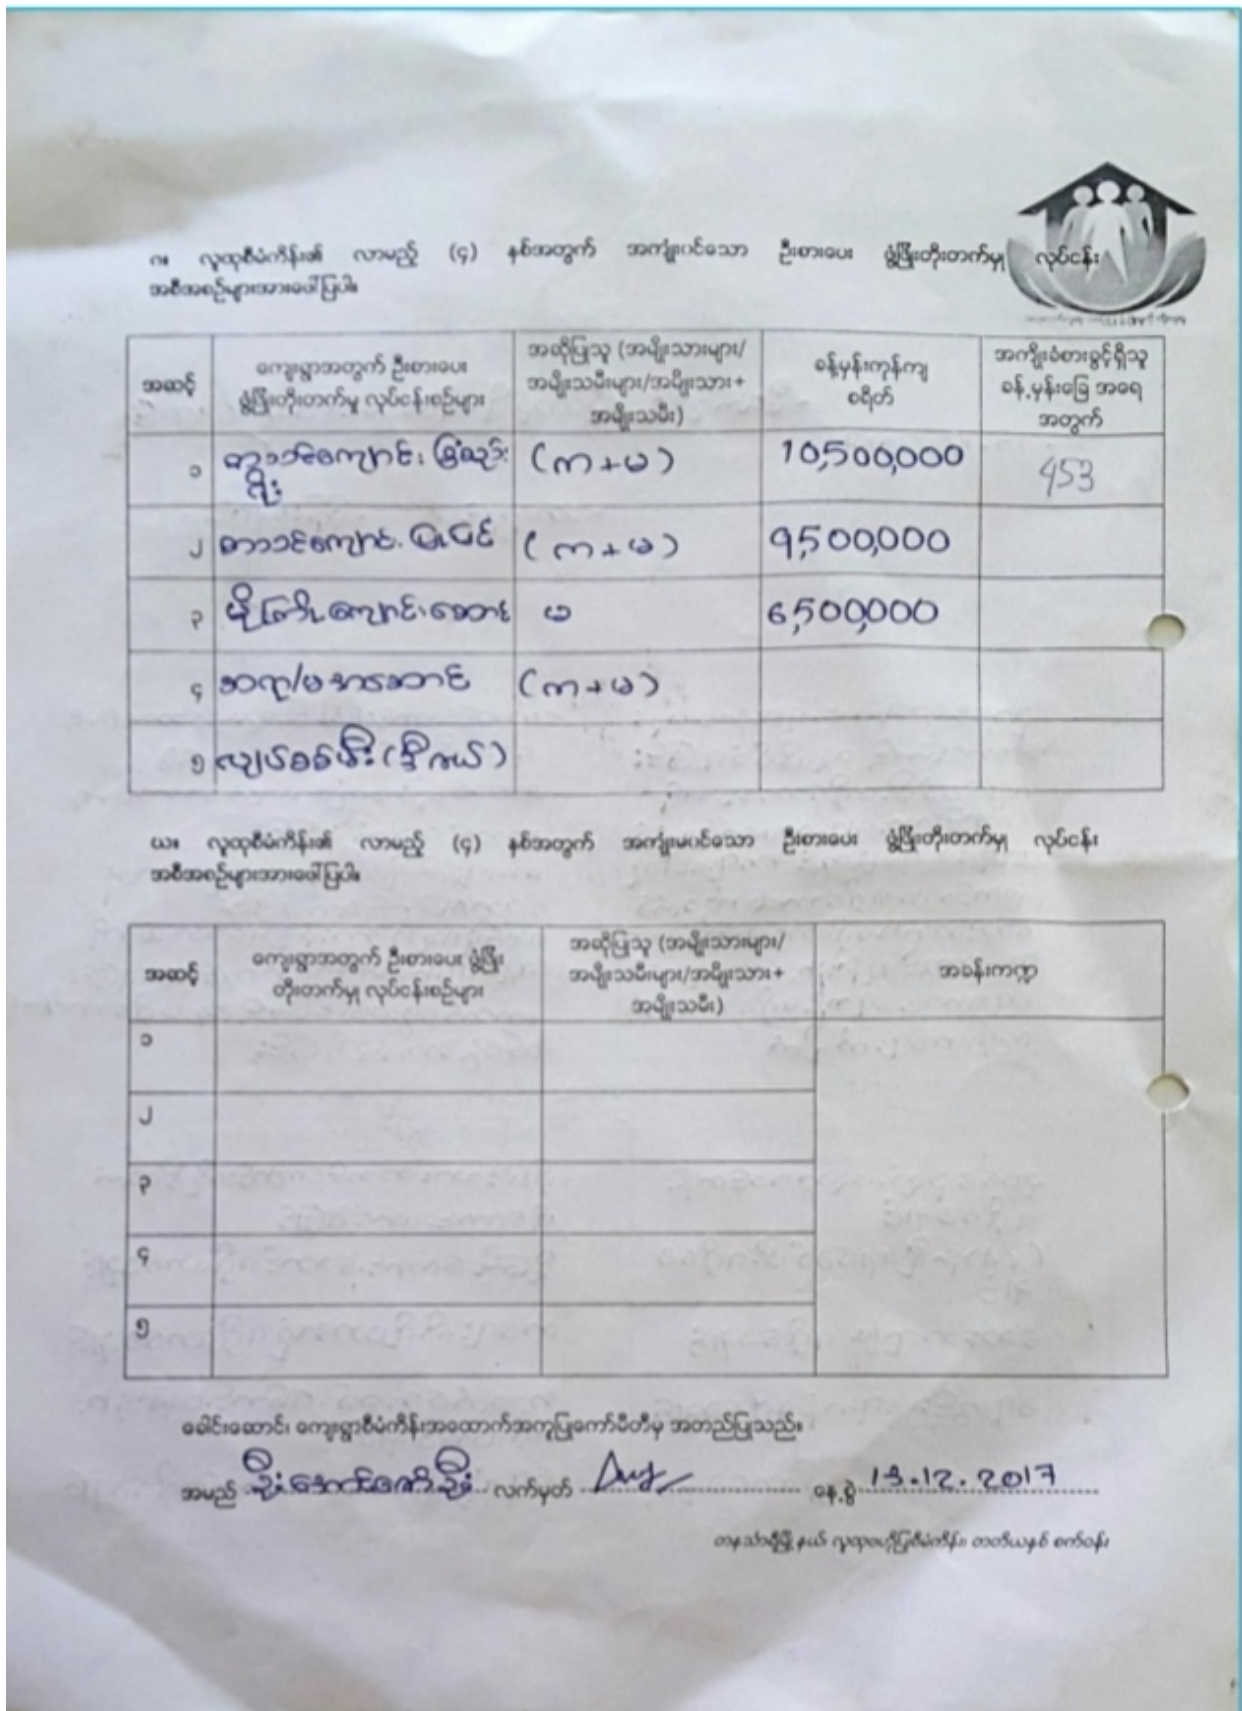 ဂ။ လူထုစီမံကိန်း၏ လာမည့် (၄) နှစ်အတွက် အကျုံးဝင်သော ဦးစားပေး ဖွံ့ဖြိုးတိုးတက်မှု လုပ်ငန်း
အစီအစဉ်များအားဖေါ်ပြပါ။
အဆင့်
ကျေးရွာအတွက် ဦးစားပေး
ဖွံ့ဖြိုးတိုးတက်မှု လုပ်ငန်းစဉ်များ
အဆိုပြုသူ (အမျိုးသားများ/
အမျိုးသမီးများ/အမျိုးသား+
အမျိုးသမီး)
ခန့်မှန်းကုန်ကျ
စရိတ်
အကျိုးခံစားခွင့်ရှိသူ
ခန့်မှန်းခြေ အရေ
အတွက်
၁ (ကာ+မ) 10,500,000 453
၂ စာသင်ကျောင်း (ကာ+မ) 9,500,000
၃ မူကြိုကျောင်းဆောင် မ 6,500,000
၄ ဆရာ/မ အားဆောင် (ကာ+မ)
၅ လျှပ်စစ်မီး
ဃ။ လူထုစီမံကိန်း၏ လာမည့် (၄) နှစ်အတွက် အကျုံးမဝင်သော ဦးစားပေး ဖွံ့ဖြိုးတိုးတက်မှု လုပ်ငန်း
အစီအစဉ်များအားဖေါ်ပြပါ။
အဆင့်
ကျေးရွာအတွက် ဦးစားပေး ဖွံ့ဖြိုး
တိုးတက်မှု လုပ်ငန်းစဉ်များ
အဆိုပြုသူ (အမျိုးသားများ/
အမျိုးသမီးများ/အမျိုးသား+
အမျိုးသမီး)
အခန်းကဏ္ဍ
၁
၂
၃
၄
၅
ခေါင်းဆောင်၊ ကျေးရွာစီမံကိန်းအထောက်အကူပြုကော်မီတီမှ အတည်ပြုသည်။
အမည် လက်မှတ် နေ့စွဲ 13.12.2017
တနင်္သာရီမြို့နယ် လူထုဗဟိုပြုစီမံကိန်း၊ တတိယနှစ် စက်ဝန်း